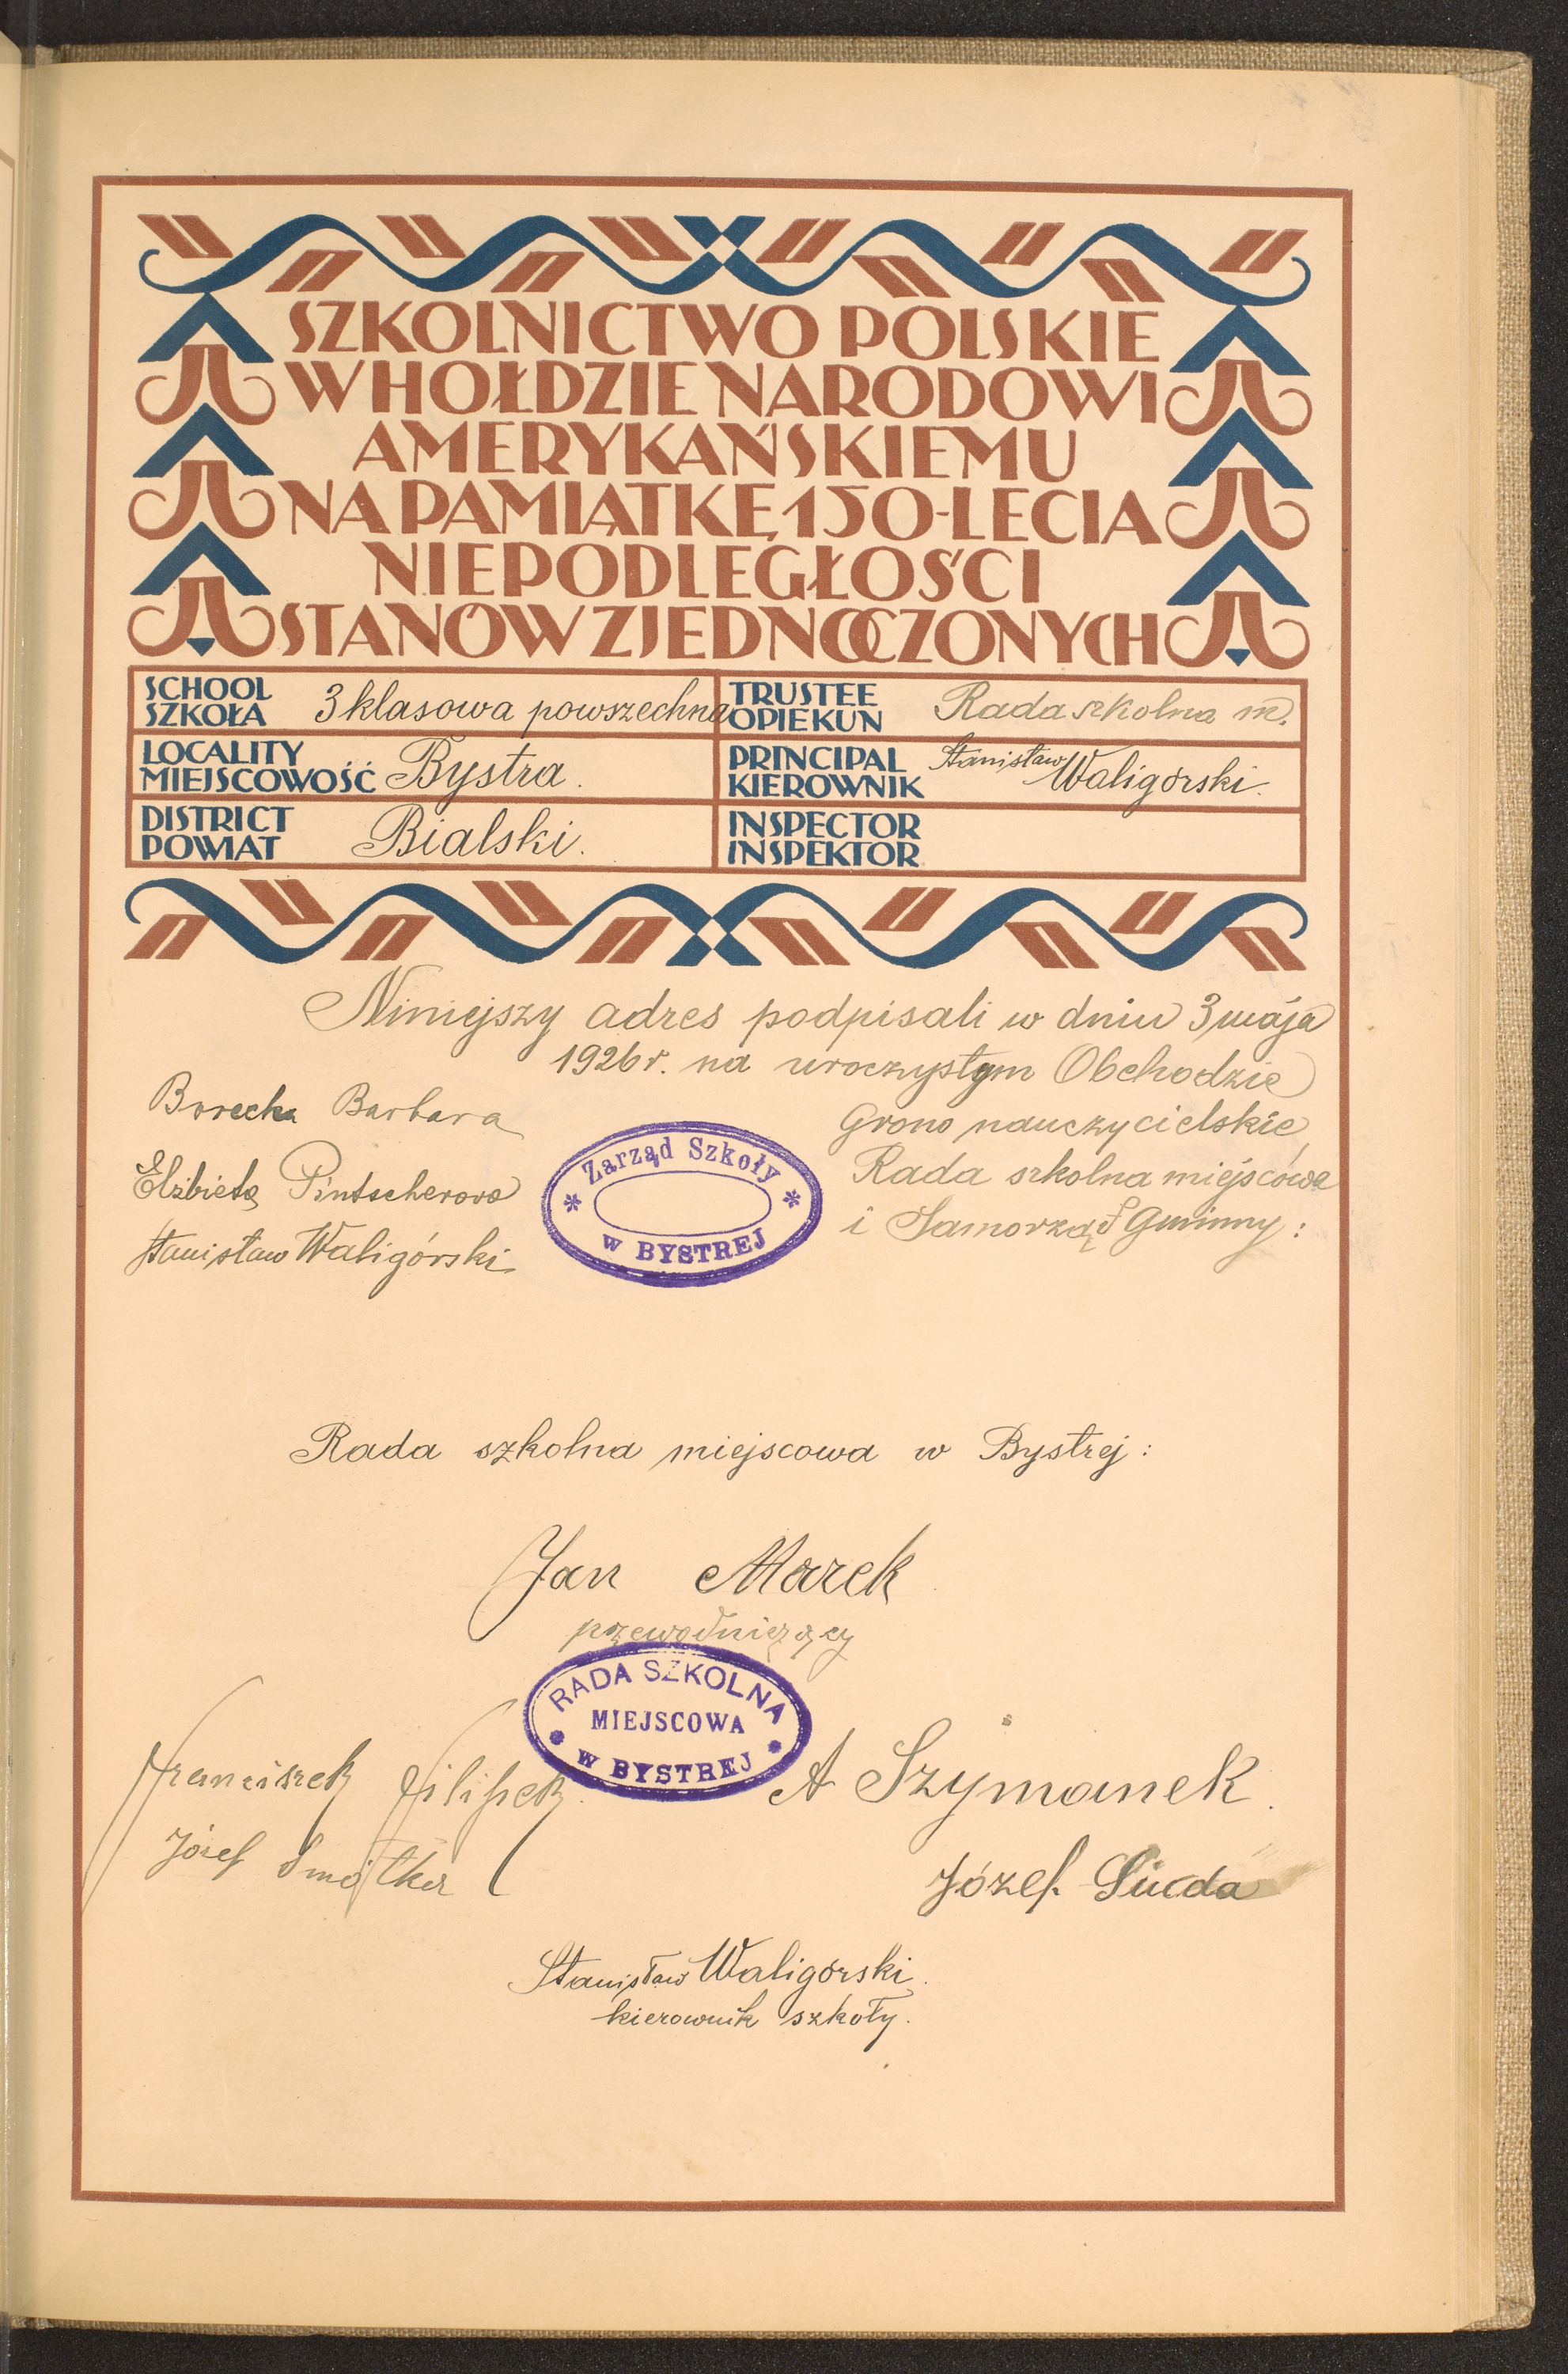 SZKOLNICTWO POLSKIE
W HOŁDZIE NARODOWI
AMERYKAŃSKIEMU
NA PAMIĄTKĘ 150-LECIA
NIEPODLEGŁOŚCI
STANÓW ZJEDNOCZONYCH
SCHOOL
SZKOŁA 3 klasowa powszechna
TRUSTEE
OPIEKUN Rada szkolna m.
LOCALITY
MIEJSCOWOŚĆ Bystra.
PRINCIPAL
KIEROWNIK Stanisław Waligórski.
DISTRICT
POWIAT Bialski.
INSPECTOR
INSPEKTOR
Niniejszy adres podpisali w dniu 3 maja
1926 r. na uroczystym Obchodzie
Grono nauczycielskie,
Rada szkolna miejscowa
i Samorząd Gminny:
Borecka Barbara
Elżbieta Pintscherowa
Stanisław Waligórski
Zarząd Szkoły
w BYSTREJ
Rada szkolna miejscowa w Bystrej:
Jan Marek
przewodniczący
RADA SZKOLNA
MIEJSCOWA
w BYSTREJ
Franciszek Filipek
A Szymanek.
Józef
Józef
Stanisław Waligórski.
kierownik szkoły.